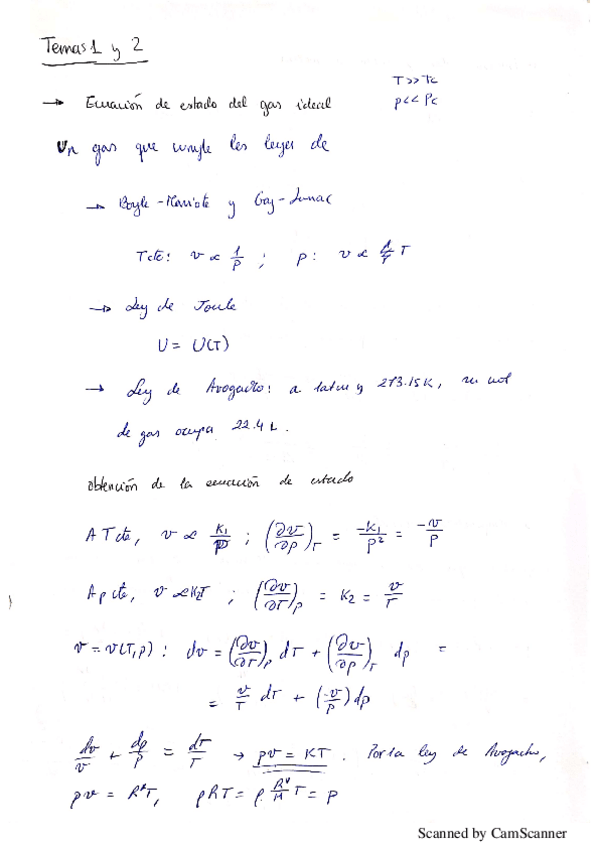 Temas 1 y 2
T>>Tc
→ Ecuación de estado del gas ideal p<<Pc
Un gas que cumple les leyes de
→ Boyle-Mariote y Gay-Lussac
Tcte: v ∝ 1/p ; p: v ∝ T
→ Ley de Joule
U = U(T)
→ Ley de Avogadro: a 1atm y 273.15K, un mol
de gas ocupa 22.4 L.
Obtención de la ecuación de estado
A T cte, v ∝ K₁/p ; (∂v/∂p)_T = -K₁/p² = -v/p
A p cte, v ∝ K₂T ; (∂v/∂T)_p = K₂ = v/T
v = v(T,p) : dv = (∂v/∂T)_p dT + (∂v/∂p)_T dp =
= v/T dT + (-v/p) dp
dv/v + dp/p = dT/T → pv = KT . Por la ley de Avogadro,
pv = R*T, ρRT = ρ R*/M T = p
Scanned by CamScanner